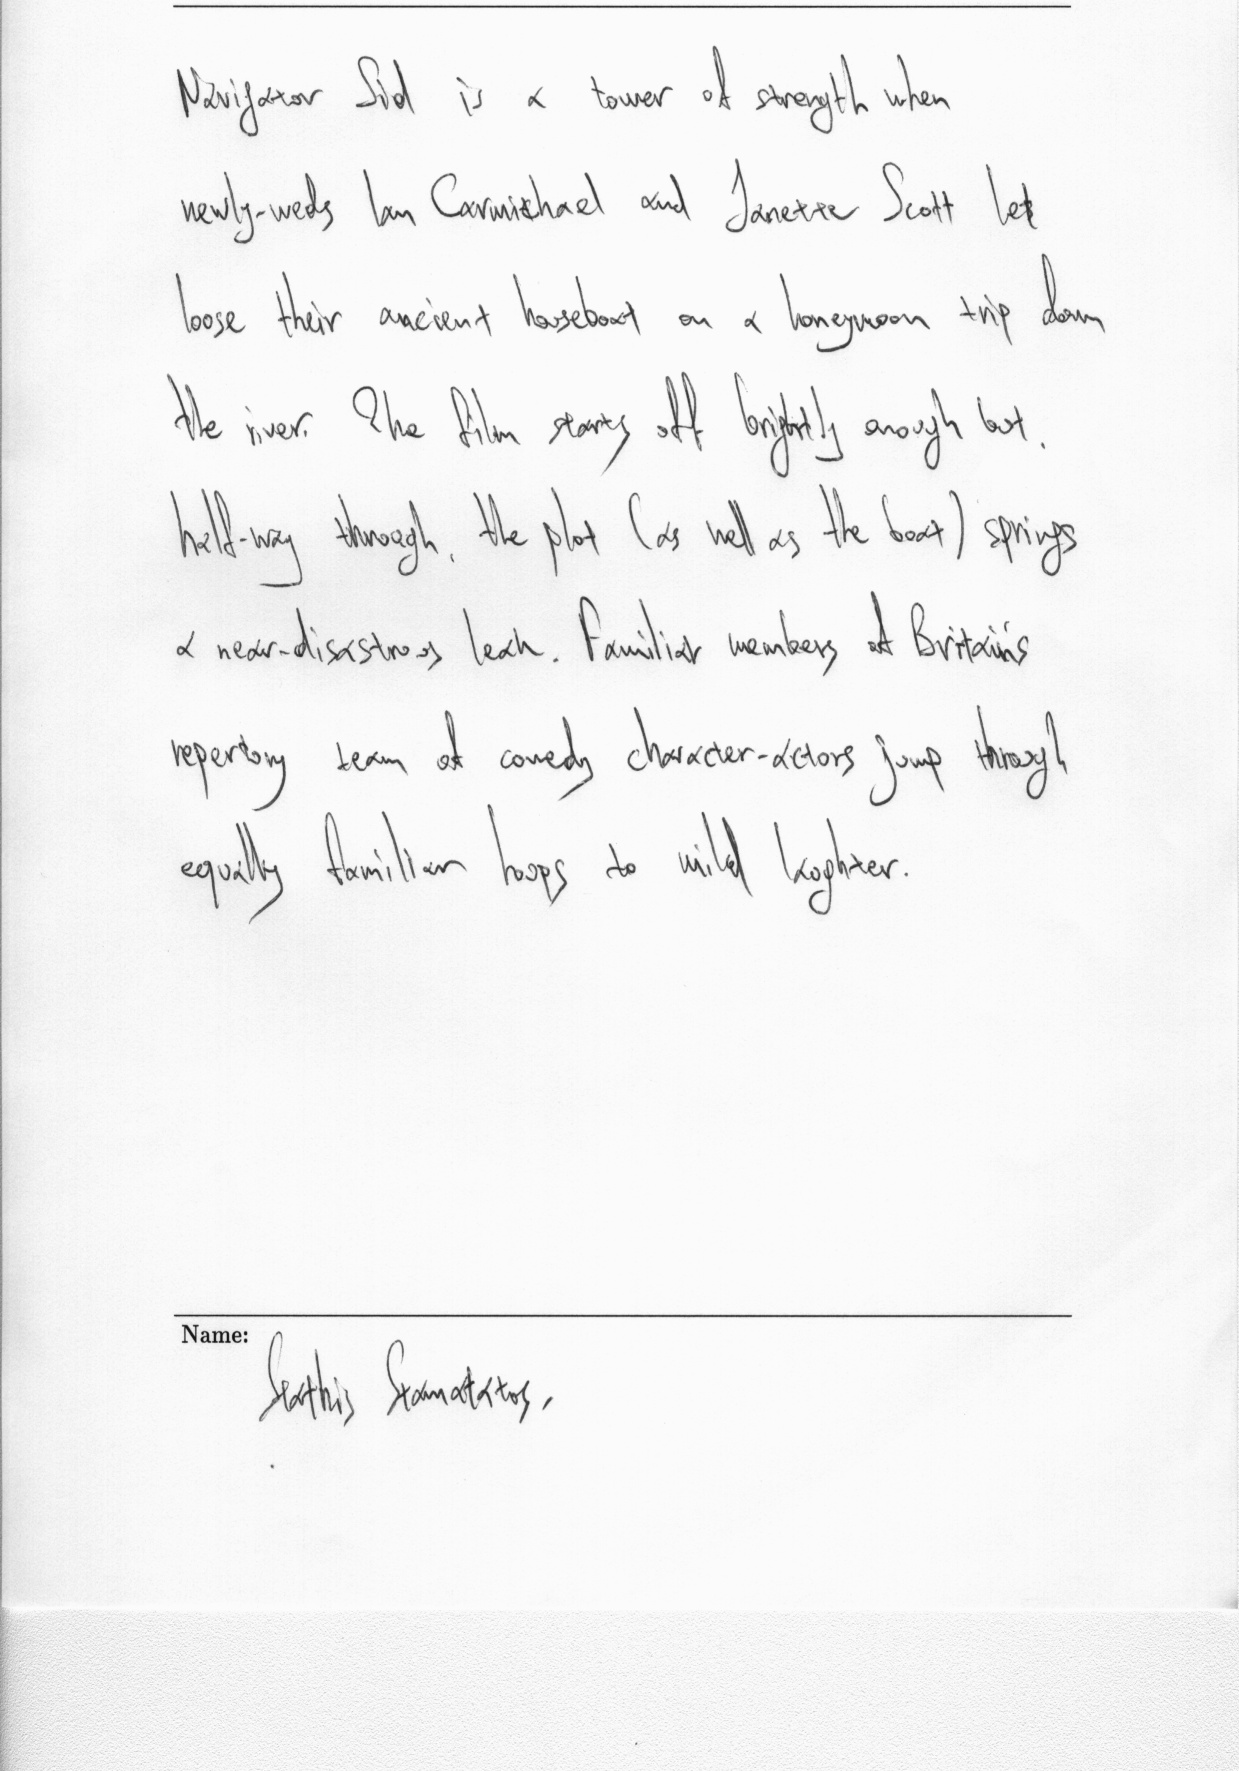 Navigator Sid is a tower of strength when
newly-weds Ian Carmichael and Janette Scott let
loose their ancient houseboat on a honeymoon trip down
the river. The film starts off brightly enough but,
half-way through, the plot (as well as the boat) springs
a near-disastrous leak. Familiar members of Britain's
repertory team of comedy character-actors jump through
equally familiar hoops to mild laughter.
Name:
Stathis Stamatatos,